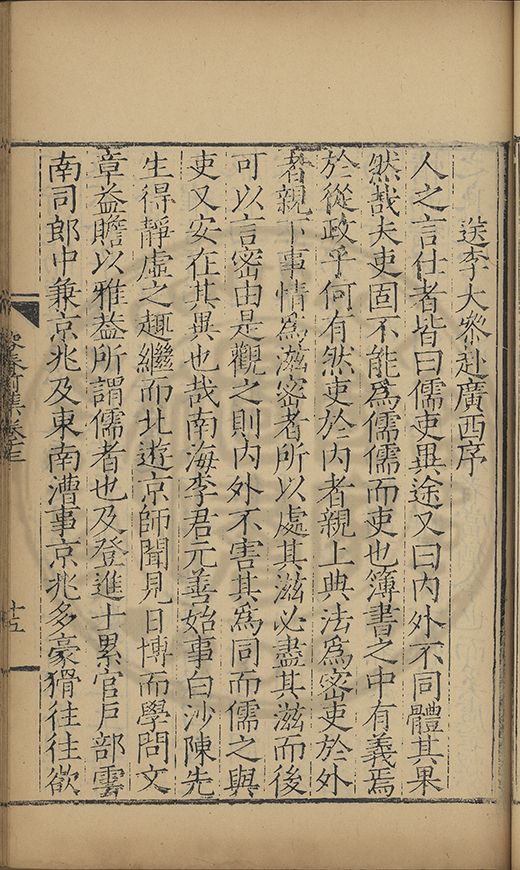 送李大叅赴廣西序
人之言仕者皆曰儒吏異途又曰內外不同體其果
然哉夫吏固不能爲儒儒而吏也簿書之中有義焉
於從政乎何有然吏於內者親上典法爲密吏於外
者親下事情爲滋密者所以處其滋必盡其滋而後
可以言密由是觀之則內外不害其爲同而儒之與
吏又安在其異也哉南海李君元善始事白沙陳先
生得靜虛之趣繼而北遊京師聞見日博而學問文
章益贍以雅益所謂儒者也及登進士累官戶部雲
南司郎中兼京兆及東南漕事京兆多豪猾往往欲
集卷三
十五